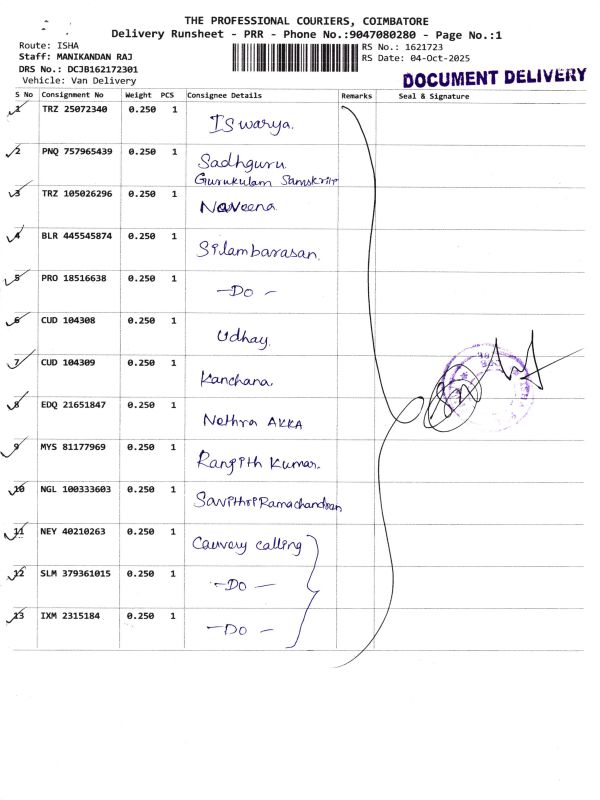 THE PROFESSIONAL COURIERS, COIMBATORE
Delivery Runsheet - PRR - Phone No.:9047080280 - Page No.:1
Route: ISHA
RS No.: 1621723
Staff: MANIKANDAN RAJ
RS Date: 04-Oct-2025
DRS No.: DCJB162172301
Vehicle: Van Delivery
DOCUMENT DELIVERY
S No Consignment No Weight PCS Consignee Details Remarks Seal & Signature
1 TRZ 25072340 0.250 1 ISwarya.
2 PNQ 757965439 0.250 1 Sadhguru
Gurukulam Samskriti
3 TRZ 105026296 0.250 1 Naveena
4 BLR 445545874 0.250 1 Silambarasan.
5 PRO 18516638 0.250 1 -Do-
6 CUD 104308 0.250 1 Udhay.
7 CUD 104309 0.250 1 Kanchana.
8 EDQ 21651847 0.250 1 Nethra AKKA
9 MYS 81177969 0.250 1 Ranjith Kumar.
10 NGL 100333603 0.250 1 Savithri Ramachandran
11 NEY 40210263 0.250 1 Cauvery calling
12 SLM 379361015 0.250 1 -Do-
13 IXM 2315184 0.250 1 -Do-